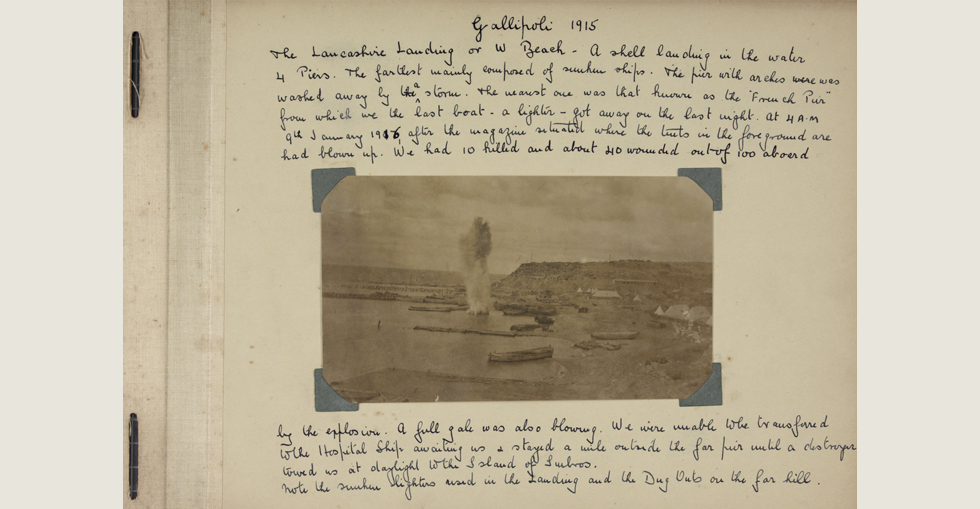 Gallipoli 1915
The Lancashire Landing or W Beach - A shell landing in the water
4 Piers. The farthest mainly composed of sunken ships. The pier with arches were was
washed away by the a storm. The nearest one was that known as the "French Pier"
from which we the last boat - a lighter - got away on the last night. At 4 A.M
9th January 1916, after the magazine situated where the tents in the foreground are
had blown up. We had 10 killed and about 40 wounded out of 100 aboard
by the explosion. A full gale was also blowing. We were unable to be transferred
to the Hospital Ship awaiting us & stayed a mile outside the far pier until a destroyer
towed us at daylight to the Island of Imbros.
Note the sunken lighters used in the Landing and the Dug Outs on the far hill.